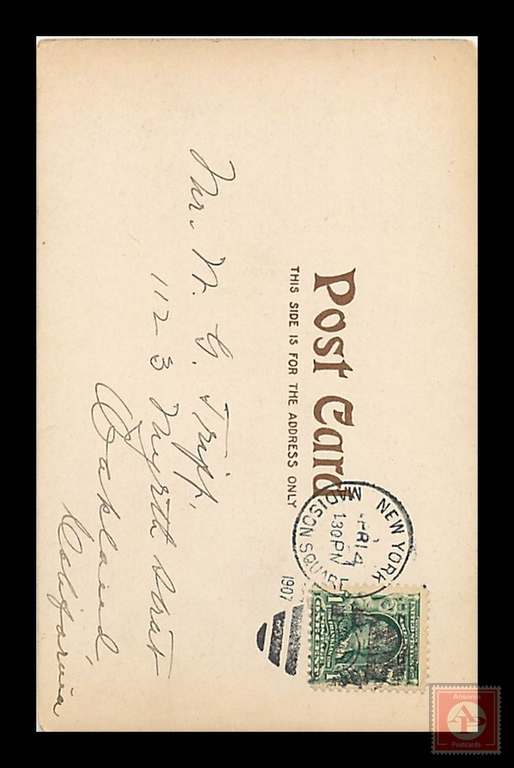 Post Card
THIS SIDE IS FOR THE ADDRESS ONLY
NEW YORK
MADISON SQUARE
APR 14
1:30 PM
1907
Mr. W. G. Tripp,
1123 Myrtle Street
Oakland,
California
Ansonia
Postcards